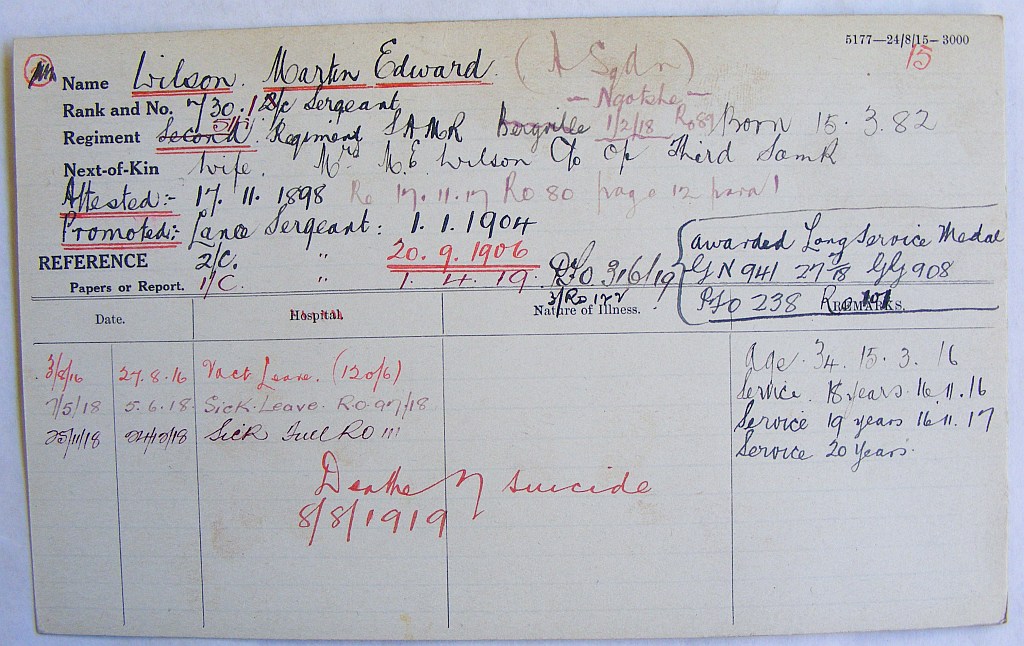 5177—24/8/15—3000
15
Name Wilson. Martin Edward. (A Sqdn)
Rank and No. 730. 1/c Sergeant — Ngotshe —
Regiment Second Regiment SAMR Bergville 1/2/18 Ro 89 Born 15. 3. 82
5th
Next-of-Kin Wife. Mrs M. E. Wilson C/o Of Third SAMR
Attested:- 17. 11. 1898 Re 17.11.17 Ro 80 page 12 para 1
Promoted:- Lance Sergeant: 1. 1. 1904
REFERENCE 2/C. " 20. 9. 1906
Papers or Report. 1/C. " 1. 4. 19. DSO 3/6/19
3/Ro 122
awarded Long Service Medal
GN 941 27/8 GG 908
PSO 238 Ro 101
Date. Hospital. Nature of Illness. REMARKS.
3/8/16 27.8.16 Vact Leave. (12 of 6) Age. 34. 15. 3. 16
7/5/18 5.6.18 Sick Leave. R.O 97/18 Service. 18 years. 16.11.16
25/11/18 24/12/18 Sick Full RO 111 Service 19 years 16 11. 17
Service 20 years.
Deathe of suicide
8/8/1919